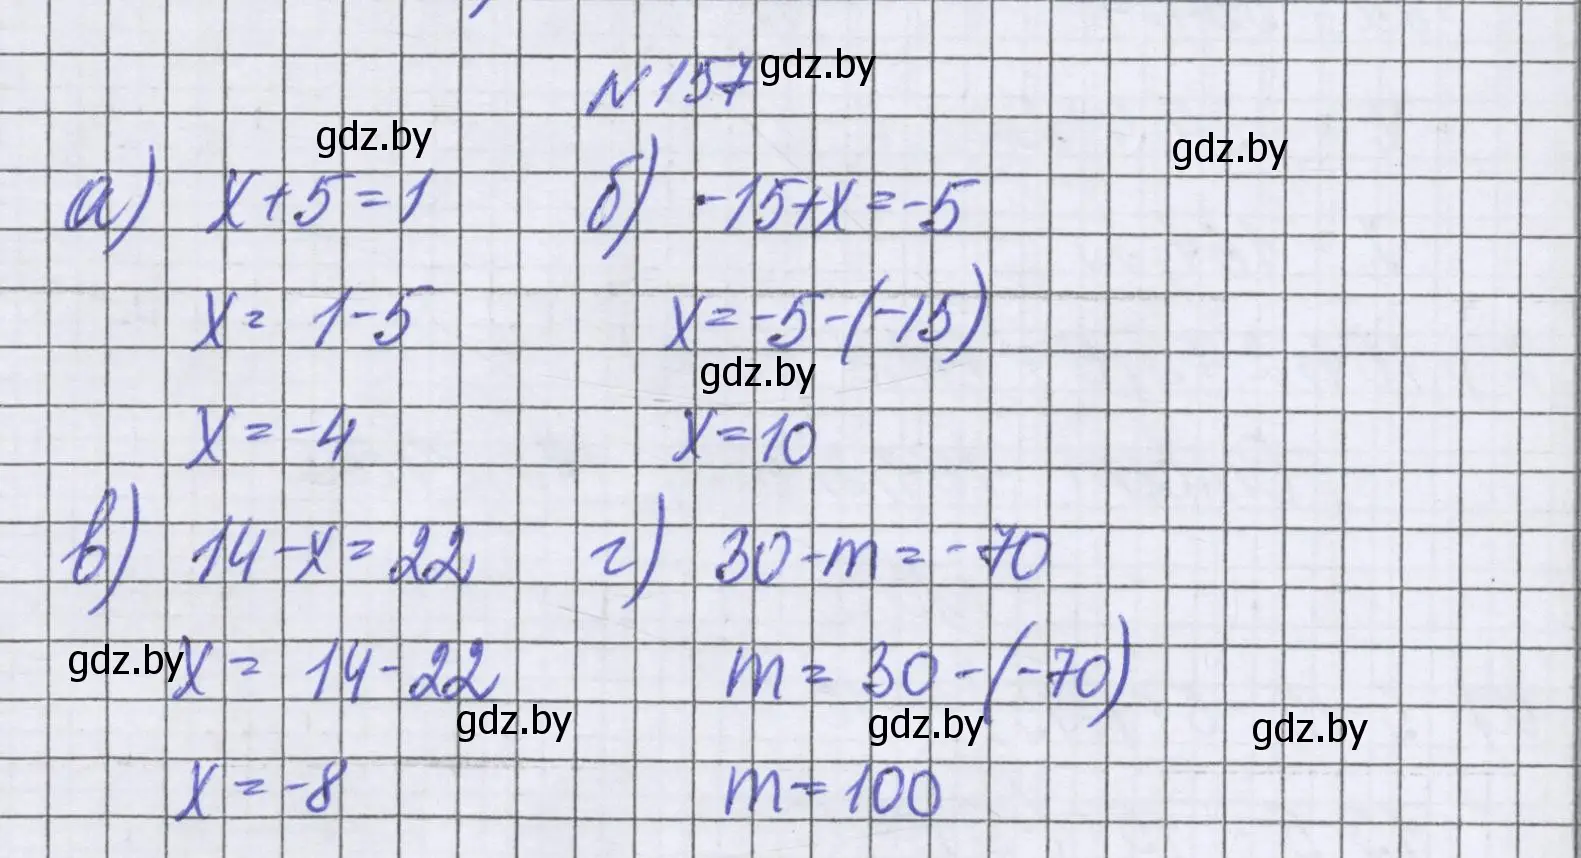 №157 gdz.by
gdz.by gdz.by
а) x+5=1 б) -15+x=-5
x= 1-5 x=-5-(-15)
gdz.by
x=-4 x=10
в) 14-x=22 г) 30-m=-70
gdz.by x= 14-22 m=30-(-70)
gdz.by gdz.by gdz.by
x=-8 m=100